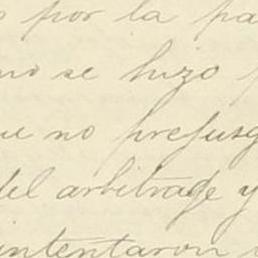 por la pa
no se hizo
ue no prejusg
del arbitrage y
intentaron